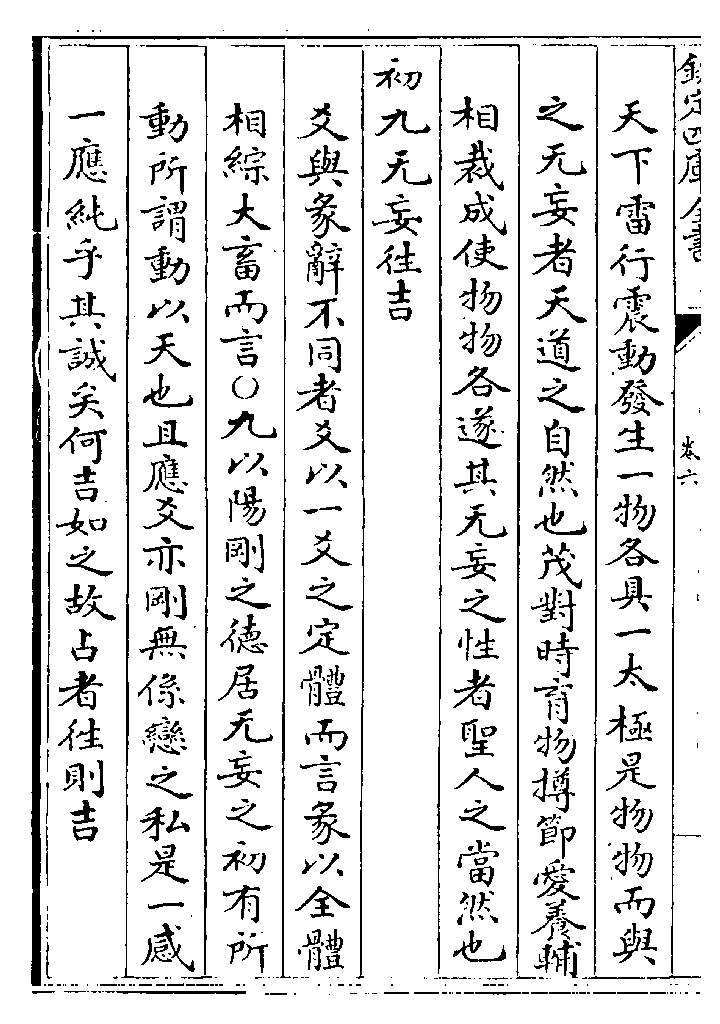 欽定四庫全書
卷六
天下雷行震動發生一物各具一太極是物物而與
之无妄者天道之自然也茂對時育物撙節愛養輔
相裁成使物物各遂其无妄之性者聖人之當然也
初九无妄徃吉
爻與彖辭不同者爻以一爻之定體而言彖以全體
相綜大畜而言○九以陽剛之德居无妄之初有所
動所謂動以天也且應爻亦剛無係戀之私是一感
一應純乎其誠矣何吉如之故占者徃則吉